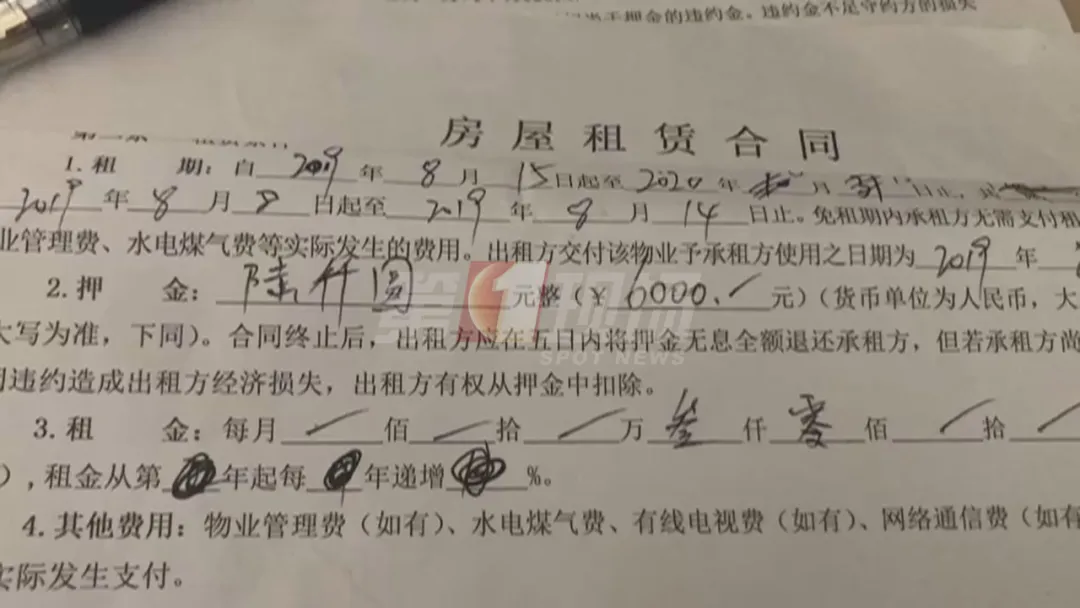 押金的违约金。违约金不足守约方的损失
房屋租赁合同
1.租 期:自2019年8月15日起至2020年 月 日止,
2019年8月8日起至2019年8月14日止。免租期内承租方无需支付租
业管理费、水电煤气费等实际发生的费用。出租方交付该物业予承租方使用之日期为2019年
2.押 金:陆仟圆元整(¥6000.-元)(货币单位为人民币,大
大写为准,下同)。合同终止后,出租方应在五日内将押金无息全额退还承租方,但若承租方尚
违约造成出租方经济损失,出租方有权从押金中扣除。
第1现场
SPOT NEWS
3.租 金:每月/佰/拾/万叁仟零佰/拾/
),租金从第 年起每 年递增 %。
4.其他费用:物业管理费(如有)、水电煤气费、有线电视费(如有)、网络通信费(如有
实际发生支付。